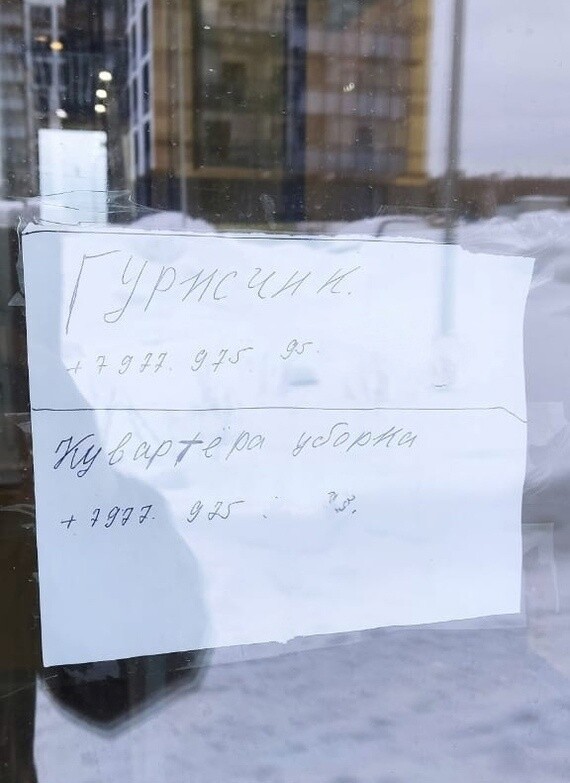 Гурисчик.
+7977. 975 95.
Кувартёра уборка
+7977. 975